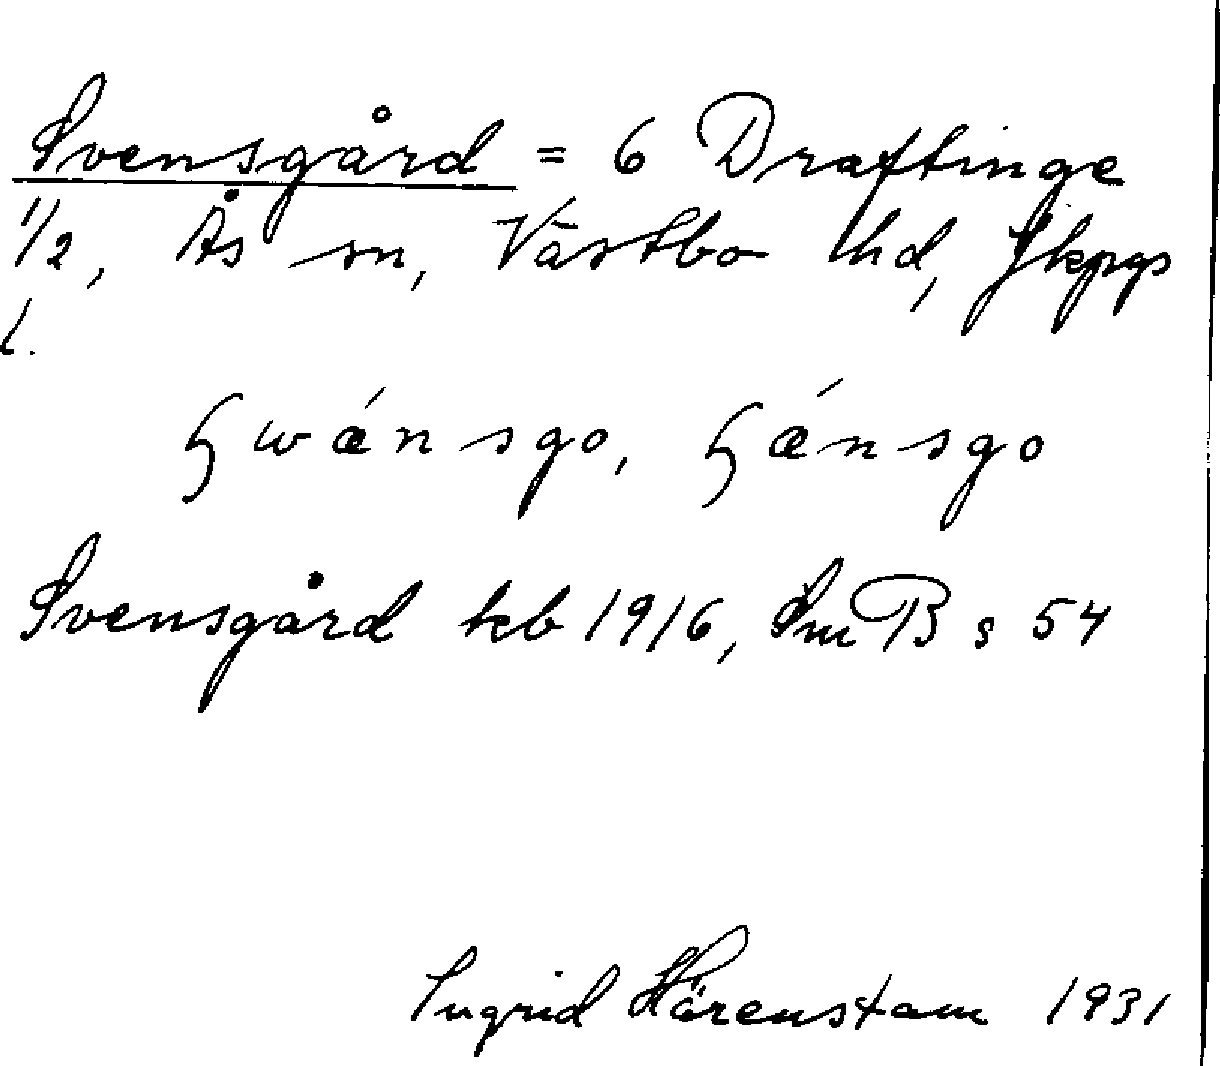 Svensgård = 6 Draftinge
1/2, Ås sn, Västbo hd, Jkpgs
l.
ɧwǽnsgo, ɧǽnsgo
Svensgård kb 1916, SmB s 54
Ingrid Härenstam 1931